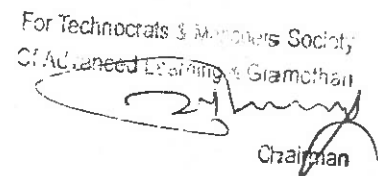 For Technocrats & Managers Society
Of Advanced Learning & Gramothan
Chairman